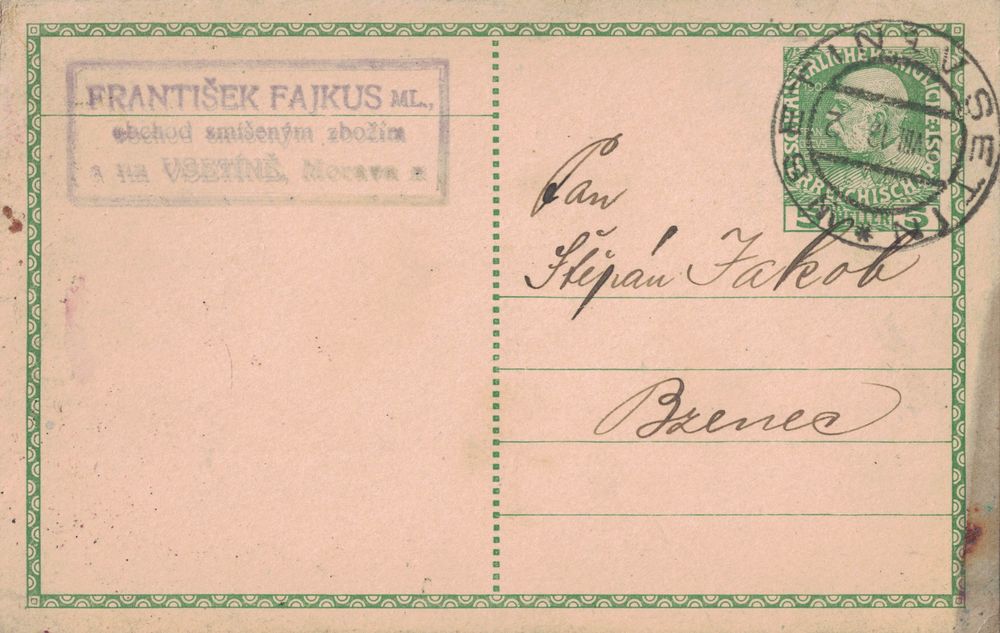 FRANTIŠEK FAJKUS ML.,
obchod smíšeným zbožím
na VSETÍNĚ, Morava
Pan
Štěpán Jakob
Bzenec
5 5
VSETÍN
VIII